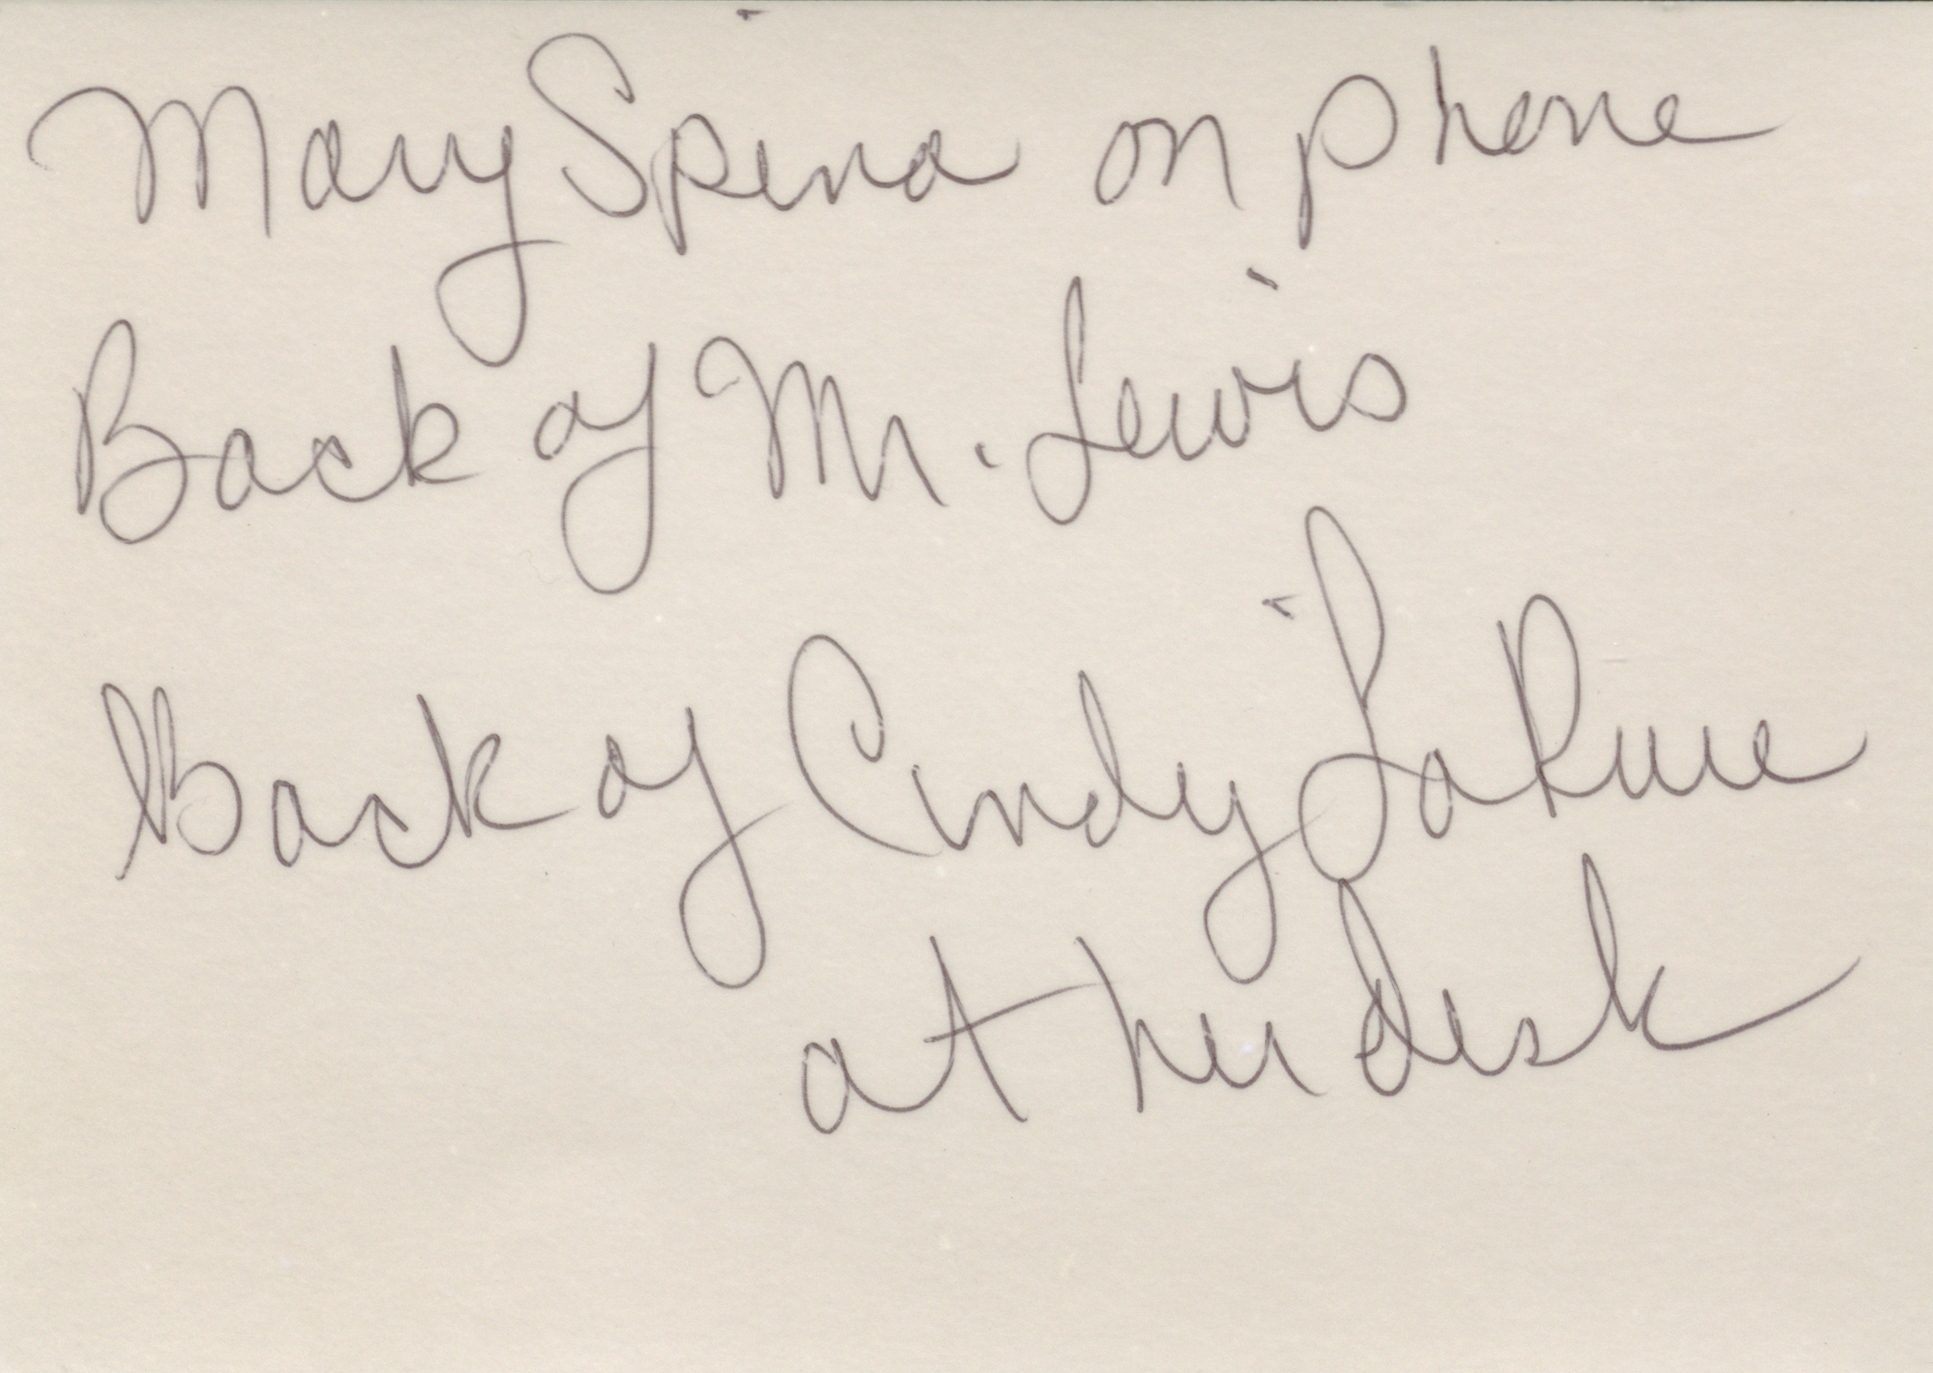 Mary Spina on phone
Back of Mr. Lewis
Back of Cindy LaRue
at her desk